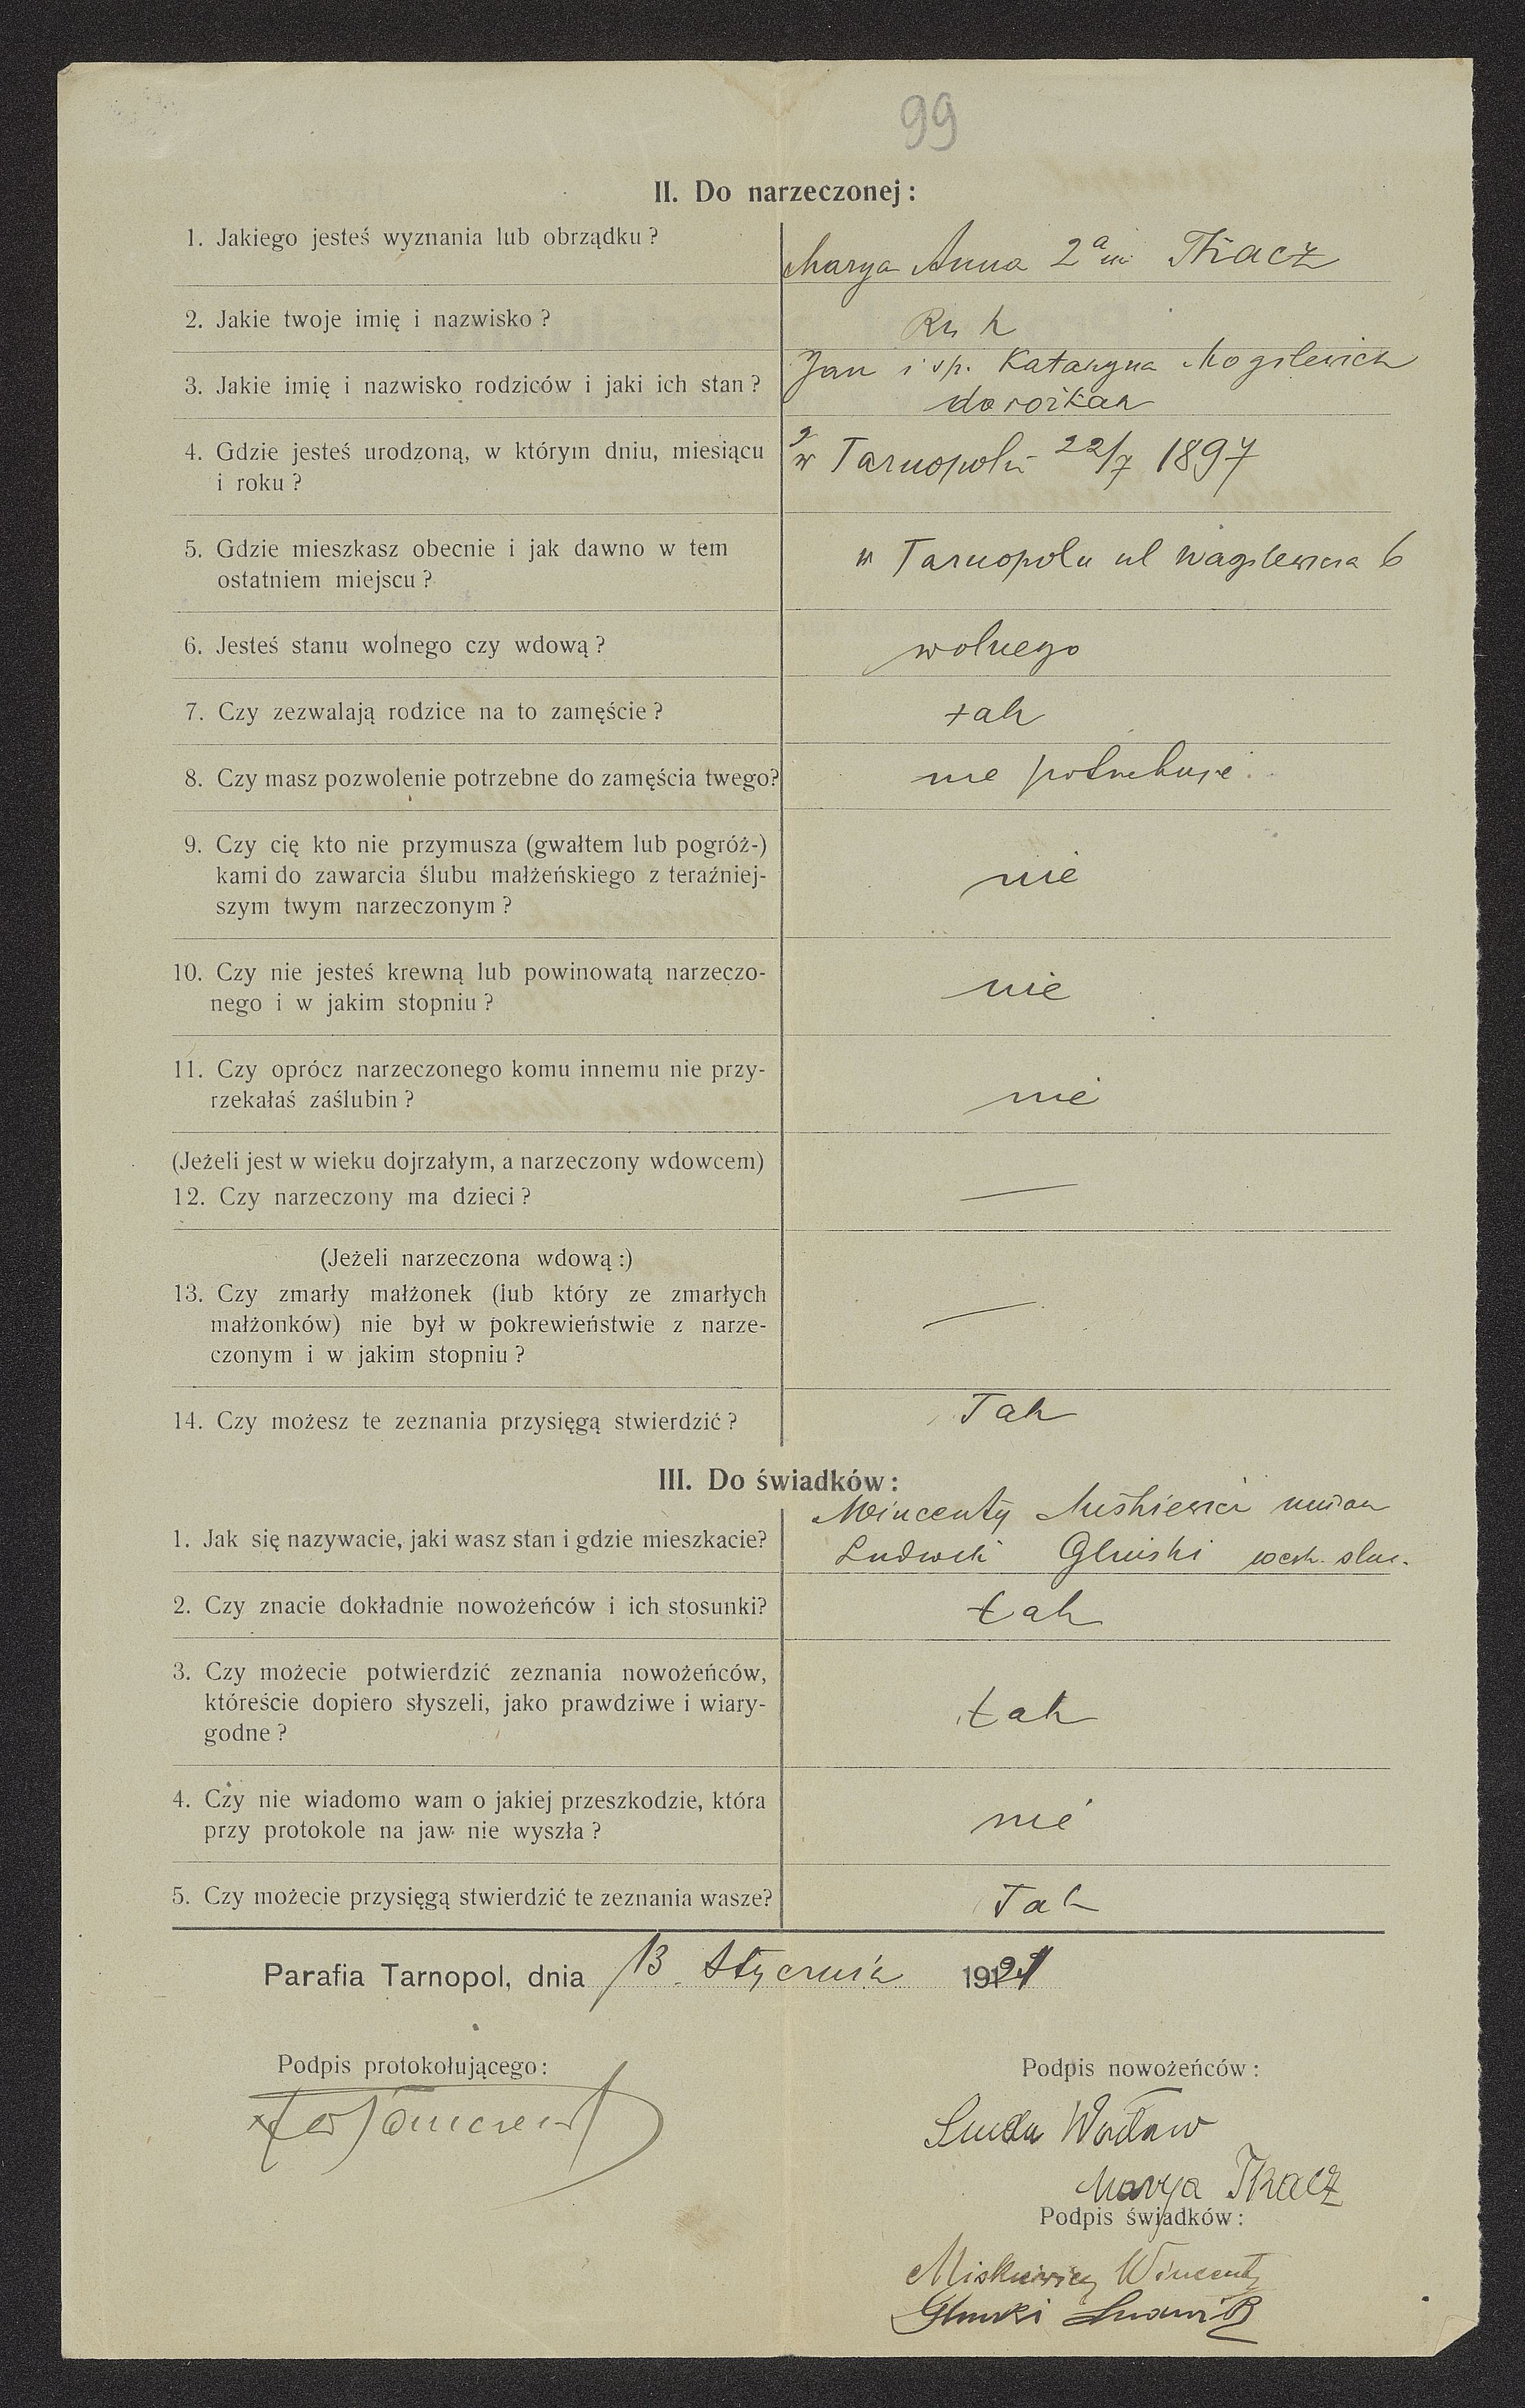 99
II. Do narzeczonej:
1. Jakiego jesteś wyznania lub obrządku?
Marya Anna 2ª im Tkacz
2. Jakie twoje imię i nazwisko?
3. Jakie imię i nazwisko rodziców i jaki ich stan?
Jan i śp. Katarzyna Mogilewich
dorożkar
4. Gdzie jesteś urodzoną, w którym dniu, miesiącu
i roku?
w Tarnopolu 22/7 1897
5. Gdzie mieszkasz obecnie i jak dawno w tem
ostatniem miejscu?
w Tarnopolu ul Wagilewicza 6
6. Jesteś stanu wolnego czy wdową?
wolnego
7. Czy zezwalają rodzice na to zamęście?
tak
8. Czy masz pozwolenie potrzebne do zamęścia twego?
nie potrzebuje
9. Czy cię kto nie przymusza (gwałtem lub pogróż-)
kami do zawarcia ślubu małżeńskiego z teraźniej-
szym twym narzeczonym?
nie
10. Czy nie jesteś krewną lub powinowatą narzeczo-
nego i w jakim stopniu?
nie
11. Czy oprócz narzeczonego komu innemu nie przy-
rzekałaś zaślubin?
nie
(Jeżeli jest w wieku dojrzałym, a narzeczony wdowcem)
12. Czy narzeczony ma dzieci?
—
(Jeżeli narzeczona wdową:)
13. Czy zmarły małżonek (lub który ze zmarłych
małżonków) nie był w pokrewieństwie z narze-
czonym i w jakim stopniu?
—
14. Czy możesz te zeznania przysięgą stwierdzić?
Tak
III. Do świadków:
1. Jak się nazywacie, jaki wasz stan i gdzie mieszkacie?
Wincenty Miśkiewicz
Ludwik Gliński
2. Czy znacie dokładnie nowożeńców i ich stosunki?
tak
3. Czy możecie potwierdzić zeznania nowożeńców,
któreście dopiero słyszeli, jako prawdziwe i wiary-
godne?
tak
4. Czy nie wiadomo wam o jakiej przeszkodzie, która
przy protokole na jaw nie wyszła?
nie
5. Czy możecie przysięgą stwierdzić te zeznania wasze?
Tak
Parafia Tarnopol, dnia 13. Stycznia 1921
Podpis protokołującego:
Podpis nowożeńców:
Wacław
Marya Tkacz
Podpis świadków:
Miskiewicz Wincenty
Gliński Ludwik